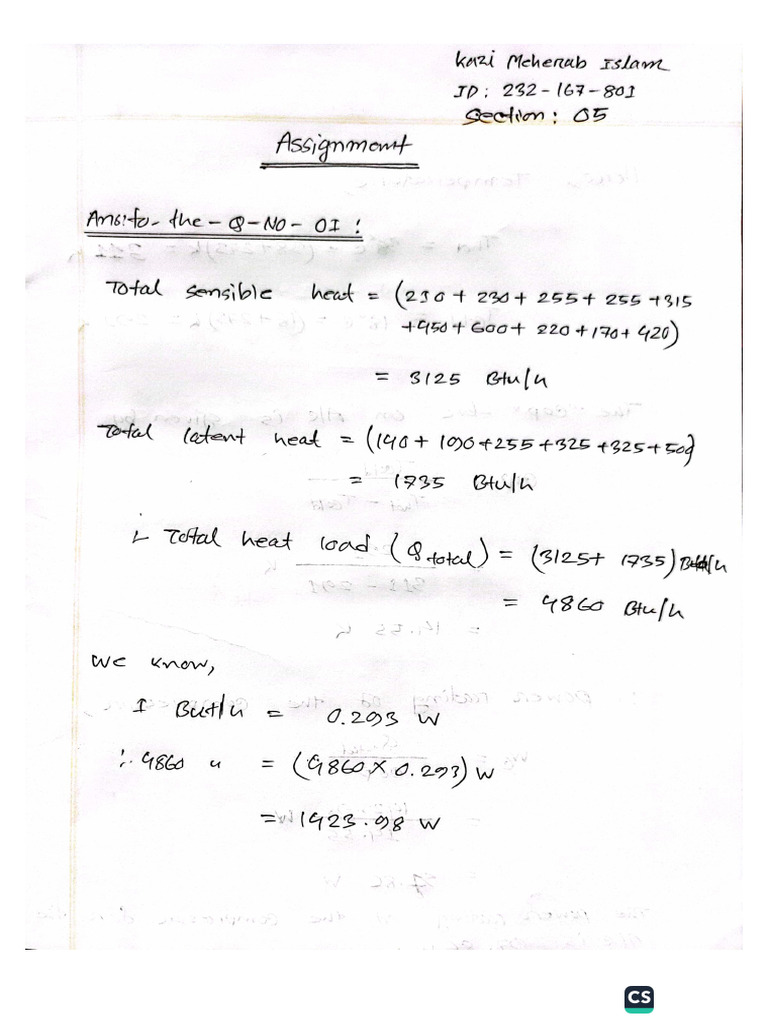 Kazi Meherab Islam
ID: 232-167-801
Section: 05
Assignment
Ans: to- the - Q - NO - 01 :
Total sensible heat = (210 + 230 + 255 + 255 + 315
+450 + 600 + 220 + 170 + 420)
= 3125 Btu/h
Total latent heat = (140 + 190 + 255 + 325 + 325 + 500)
= 1735 Btu/h
∴ Total heat load (Q total) = (3125 + 1735) Btu/h
= 4860 Btu/h
We know,
1 But/h = 0.293 W
∴ 4860 " = (4860 × 0.293) W
= 1423.98 W
CS